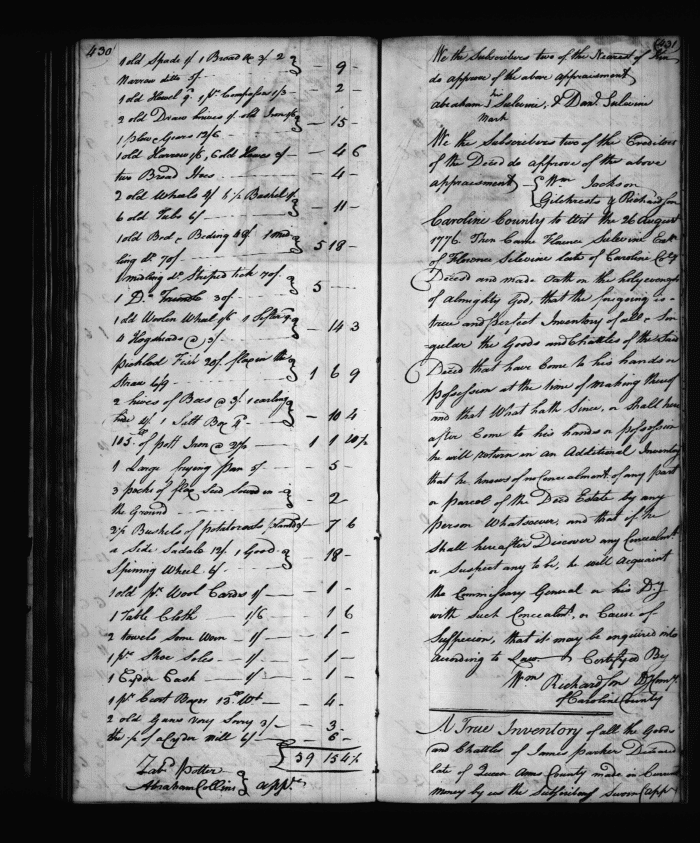 430
1 old Spade & 1 Broad ax 3/ 2 } — 9 —
Narrow ditto 5/
1 old Howel 9d. 1 pr. Compasses 1/3 — — 2 —
2 old Draw knives & old Iron } — 15 —
1 plow & Gears 12/6
1 old Harrow 1/6, 6 old Howes — 4 6
two Bread trees — — 4 —
2 old Wheels 4/ 6 1/2 Bushel } — 11 —
6 old Tubs 6/
1 old Bed & Beding 48/ 1 mid } 5 18 —
ling do. 70/
1 midling do. Striped tick 70/ } 5
1 Do. Trundle 30/
1 old Woolen Wheel } — 14 3
4 Hogsheads @ 3/
pickled Fish 20/. flax in the } 1 6 9
Straw 6/9
2 hives of Bees @ 3/ 1 earling } — 10 4
hide 4/ 1 Salt Box
105 lb of pott Iron @ 2 1/2 — 1 1 10 1/2
1 Large frying pan 5/ — — 5 —
3 pecks of flax Seed Sowed in } — 2 —
the Ground
2 1/2 Bushels of potatoes — 7 6
a Side Sadale 12/ 1 Good } — 18 —
Spinning Wheel 6/
1 old pr. Wool Cards 1/ — — 1 —
1 Table Cloth — 1/6 — 1 6
2 towels Some Worn — 1/ — — 1 —
1 pr. Shoe Soles — 1/ — — 1 —
1 Cyder Cask — 1/ — — 1 —
1 pr. Cart Boxes 13 lb Wt — — 4 —
2 old Guns very Sorry 3/ — 3 —
the 1/2 of a Cyder Mill 6/ — 6 —
{ 39 15 4 1/2
Zab: Potter
Abraham Collins } appr.
(431
We the Subscribers two of the Nearest of Kin
do approve of the above appraisement
Abraham Sulevine, & Danl. Sulevine
Mark
We the Subscribers two of the Creditors
of the Deced do approve of the above
appraisement } Wm Jackson
Gilchrests & Richardson
Caroline County to Wit the 26 August
1776. Then Came Flarence Sulevine Exr.
of Florence Sulevine late of Caroline Coty
Deced and made Oath on the holy evangels
of Almighty God, that the foregoing is a
true and perfect Inventory of all & Sin
gular the Goods and Chattles of the Said
Deced that have Come to his hands or
possession at the time of Making thereof
and that What hath Since, or Shall here
after Come to his hands or possession
he will return in an Additional Inventory
that he knows of no Concealment of any part
or parcel of the Deced Estate by any
person Whatsoever, and that if he
Shall hereafter Discover any Concealmt.
or Suspect any to be, he will acquaint
the Commissary General or his Dy
with Such Concealmt. or Cause of
Suspicion, that it may be enquired into
According to Law. Certifyed By
Wm Richardson Dy Comy.
of Caroline County
A True Inventory of all the Goods
and Chattles of James Parker Deceased
late of Queen Anns County made in Current
Money by us the Subscribers Sworn (appr